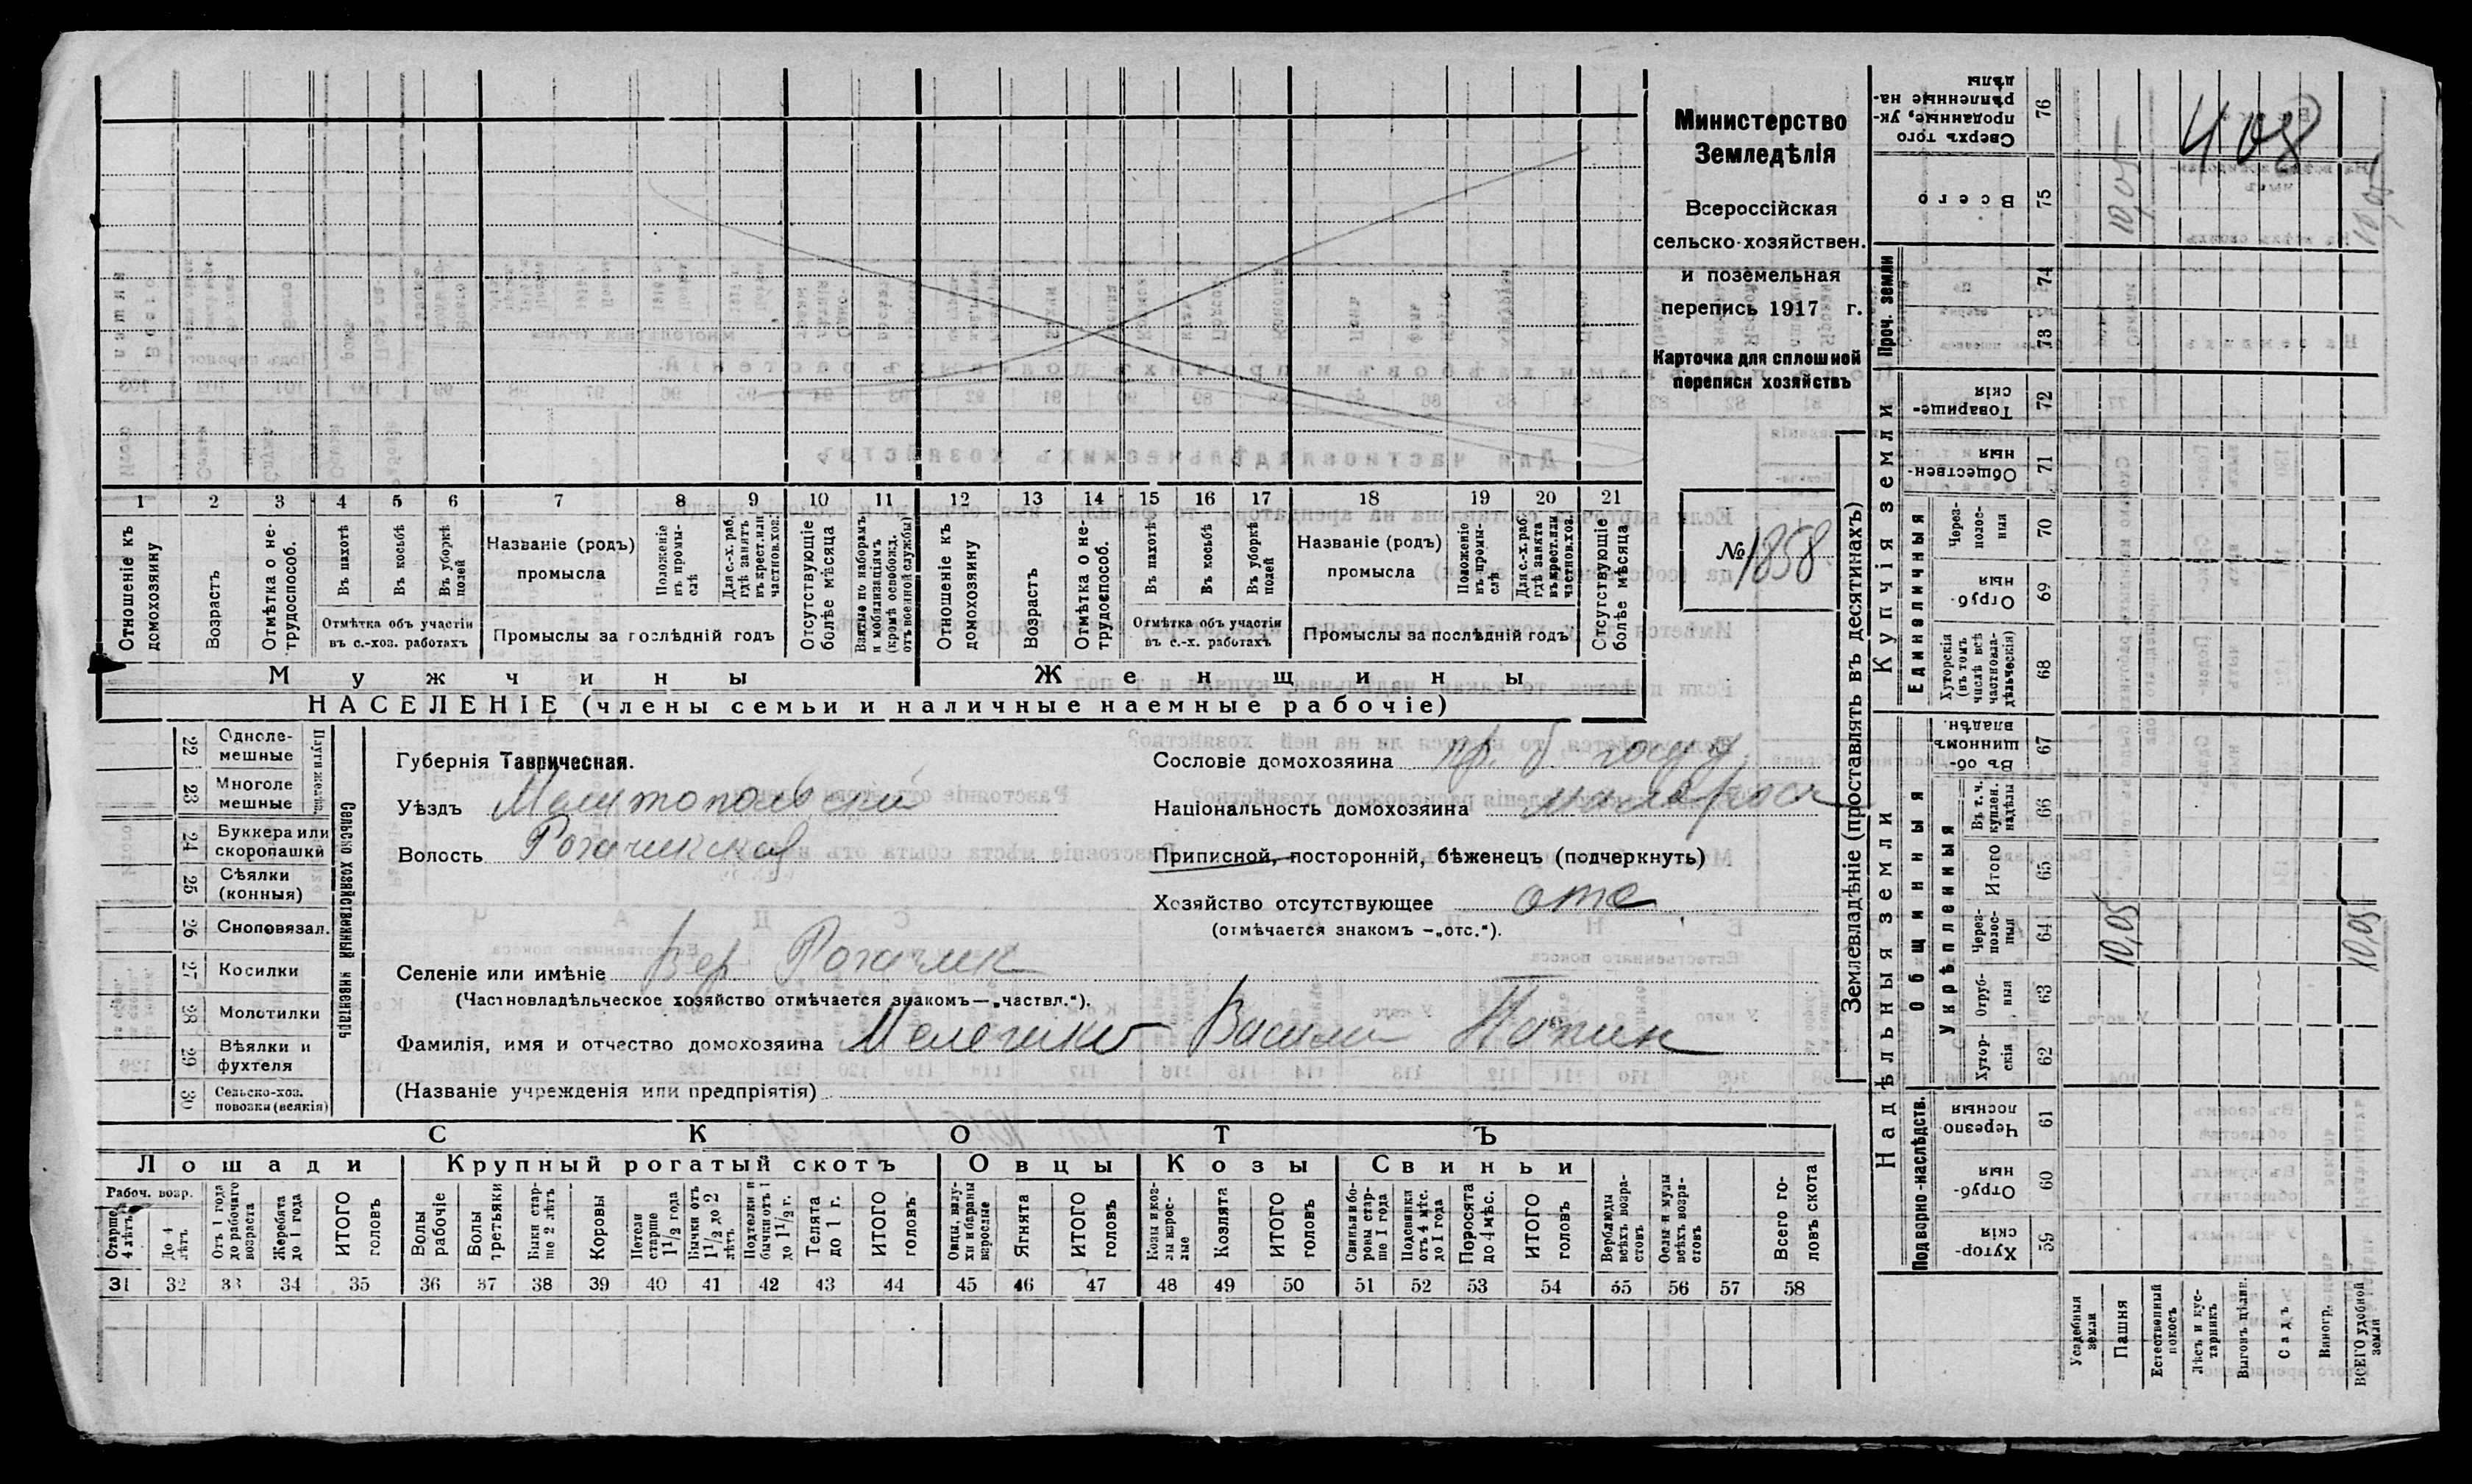 Министерство
Земледѣлія
Всероссійская
сельско-хозяйствен.
и поземельная
перепись 1917 г.
Карточка для сплошной
переписи хозяйствъ
№ 1858
408
1 2 3 4 5 6 7 8 9 10 11 12 13 14 15 16 17 18 19 20 21
Отношеніе къ домохозяину
Возрастъ
Отмѣтка о нетрудоспособ.
Въ пахотѣ
Въ косьбѣ
Въ уборкѣ полей
Отмѣтка объ участіи
въ с.-хоз. работахъ
Названіе (родъ)
промысла
Положеніе въ промыслѣ
Для с.-х. раб. гдѣ занятъ въ крест. или частнов. хоз.
Промыслы за послѣдній годъ
Отсутствующіе болѣе мѣсяца
Взятые по наборамъ и мобилизаціямъ (кромѣ освобожд. отъ военной службы)
Отношеніе къ домохозяину
Возрастъ
Отмѣтка о нетрудоспособ.
Въ пахотѣ
Въ косьбѣ
Въ уборкѣ полей
Отмѣтка объ участіи
въ с.-х. работахъ
Названіе (родъ)
промысла
Положеніе въ промыслѣ
Для с.-х. раб. гдѣ занята въ крест. или частнов. хоз.
Промыслы за послѣдній годъ
Отсутствующіе болѣе мѣсяца
Мужчины
Женщины
НАСЕЛЕНІЕ (члены семьи и наличные наемные рабочіе)
Сельско хозяйственный инвентарь
22 Однолемешные
23 Многолемешные
24 Буккера или скоропашки
25 Сѣялки (конныя)
26 Сноповязал.
27 Косилки
28 Молотилки
29 Вѣялки и фухтеля
30 Сельско-хоз. повозки (всякія)
Губернія Таврическая.
Уѣздъ Мелитопольскій
Волость Рогачикская
Селеніе или имѣніе Вер Рогачик
(Частновладѣльческое хозяйство отмѣчается знакомъ—„частвл.“).
Фамилія, имя и отчество домохозяина
(Названіе учрежденія или предпріятія)
Сословіе домохозяина
Національность домохозяина малоросс
Приписной, посторонній, бѣженецъ (подчеркнуть)
Хозяйство отсутствующее отс
(отмѣчается знакомъ —„отс.“).
СКОТЪ
Лошади
Крупный рогатый скотъ
Овцы
Козы
Свиньи
Рабоч. возр.
Старше 4 лѣтъ
До 4 лѣтъ
Отъ 1 года до рабочаго возраста
Жеребята до 1 года
ИТОГО головъ
Волы рабочіе
Волы третьяки
Быки старше 2 лѣтъ
Коровы
Нетели старше 1 1/2 года
Бычки отъ 1 1/2 до 2 лѣтъ
Подтелки и бычки отъ 1 до 1 1/2 г.
Телята до 1 г.
ИТОГО головъ
Овцы, валухи и бараны взрослые
Ягнята
ИТОГО головъ
Козы и козлы взрослые
Козлята
ИТОГО головъ
Свиньи и боровы старше 1 года
Подсвинки отъ 4 мѣс. до 1 года
Поросята до 4 мѣс.
ИТОГО головъ
Верблюды всѣхъ возрастовъ
Ослы и мулы всѣхъ возрастовъ
Всего головъ скота
31 32 33 34 35 36 37 38 39 40 41 42 43 44 45 46 47 48 49 50 51 52 53 54 55 56 57 58
Землевладѣніе (проставлять въ десятинахъ)
Надѣльныя земли
Купчія земли
Проч. земли
Подворно-наслѣдств.
Общинныя
Укрѣпленныя
Единоличныя
Хуторскія 59
Отрубныя 60
Черезполосныя 61
Хуторскія 62
Отрубныя 63
Черезполосныя 64
Итого 65
Въ т. ч. куплен. надѣлы 66
Въ общинномъ владѣн. 67
Хуторскія (въ томъ числѣ всѣ частновладѣльческія) 68
Отрубныя 69
Черезполосныя 70
Общественныя 71
Товарищескія 72
73
74
Всего 75
Сверхъ того проданные, укрѣпленные надѣлы 76
Усадебныя земли
Пашня
Естественный покосъ
Лѣсъ и кустарникъ
Выгонъ цѣлин.
Садъ
Виногр.
ВСЕГО удобной земли
10,05
10,05
10,05
10,05